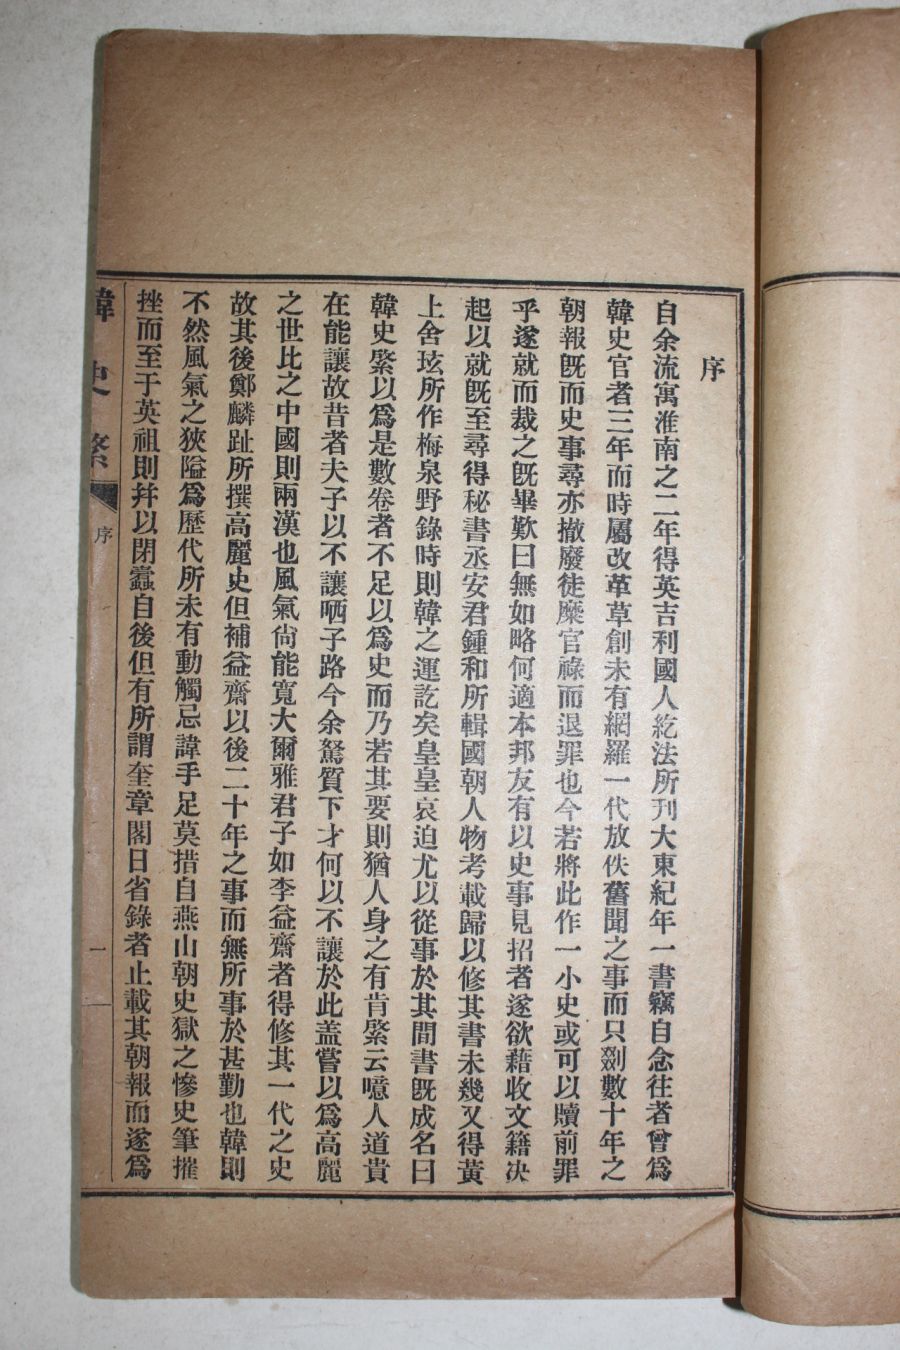 序
自余流寓淮南之二年得英吉利國人紇法所刊大東紀年一書竊自念往者曾爲
韓史官者三年而時屬改革草創未有網羅一代放佚舊聞之事而只劄數十年之
朝報旣而史事尋亦撤廢徒糜官祿而退罪也今若將此作一小史或可以贖前罪
乎遂就而裁之旣畢歎曰無如略何適本邦友有以史事見招者遂欲藉收文籍決
起以就旣至尋得秘書丞安君鍾和所輯國朝人物考載歸以修其書未幾又得黃
上舍玹所作梅泉野錄時則韓之運訖矣皇皇哀迫尤以從事於其間書旣成名曰
韓史綮以爲是數卷者不足以爲史而乃若其要則猶人身之有肯綮云噫人道貴
在能讓故昔者夫子以不讓哂子路今余駑質下才何以不讓於此盖嘗以爲高麗
之世比之中國則兩漢也風氣尙能寬大爾雅君子如李益齋者得修其一代之史
故其後鄭麟趾所撰高麗史但補益齋以後二十年之事而無所事於甚勤也韓則
不然風氣之狹隘爲歷代所未有動觸忌諱手足莫措自燕山朝史獄之慘史筆摧
挫而至于英祖則幷以閉蠹自後但有所謂奎章閣日省錄者止載其朝報而遂爲
韓史綮
序
一